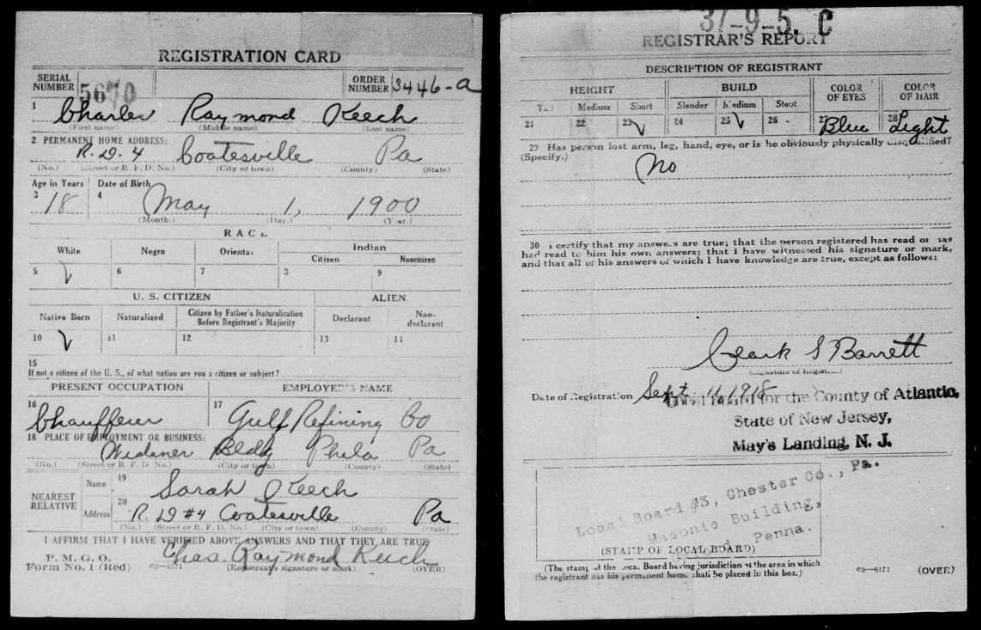 REGISTRATION CARD
SERIAL NUMBER 5670 ORDER NUMBER 3446-a
1 Charles Raymond Keech
(First name) (Middle name) (Last name)
2 PERMANENT HOME ADDRESS:
R.D. 4 Coatesville Pa
(No.) (Street or R. F. D. No.) (City or town) (County) (State)
Age in Years Date of Birth
3 18 4 May 1, 1900
(Month.) (Day.) (Year.)
RACE
White Negro Oriental Indian
Citizen Noncitizen
5 6 7 8 9
U. S. CITIZEN ALIEN
Native Born Naturalized Citizen by Father's Naturalization Before Registrant's Majority Declarant Non-declarant
10 11 12 13 14
15
If not a citizen of the U. S., of what nation are you a citizen or subject?
PRESENT OCCUPATION EMPLOYER'S NAME
16 Chauffeur 17 Gulf Refining Co
18 PLACE OF EMPLOYMENT OR BUSINESS:
Widener Bldg Phila Pa
(No.) (Street or R. F. D. No.) (City or town) (County) (State)
NEAREST RELATIVE Name 19 Sarah Keech
Address 20 R.D #4 Coatesville Pa
(No.) (Street or R. F. D. No.) (City or town) (County) (State)
I AFFIRM THAT I HAVE VERIFIED ABOVE ANSWERS AND THAT THEY ARE TRUE
P. M. G. O.
Form No. 1 (Red) Chas. Raymond Keech
(Registrant's signature or mark) (OVER)
37-9-5. C
REGISTRAR'S REPORT
DESCRIPTION OF REGISTRANT
HEIGHT BUILD COLOR OF EYES COLOR OF HAIR
Tall Medium Short Slender Medium Stout
21 22 23 24 25 26 27 Blue 28 Light
29 Has person lost arm, leg, hand, eye, or is he obviously physically disqualified?
(Specify.) No
30 I certify that my answers are true; that the person registered has read or has
had read to him his own answers; that I have witnessed his signature or mark,
and that all of his answers of which I have knowledge are true, except as follows:
Clark S Barrett
(Signature of Registrar)
Date of Registration Sept. 11, 1918
for the County of Atlantic,
State of New Jersey,
May's Landing, N. J.
Local Board #3, Chester Co., Pa.
Masonic Building,
Penna.
(STAMP OF LOCAL BOARD)
(The stamp of the Local Board having jurisdiction of the area in which
the registrant has his permanent home shall be placed in this box.)
(OVER)